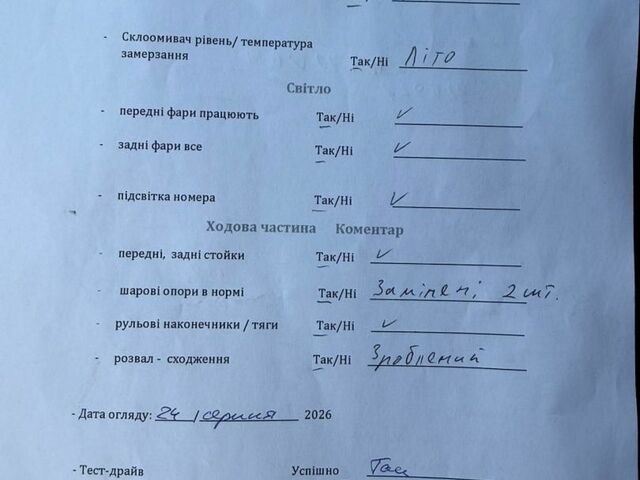 - Склоомивач рівень/ температура
замерзання Так/Ні Літо
Світло
- передні фари працюють Так/Ні ✓
- задні фари все Так/Ні ✓
- підсвітка номера Так/Ні ✓
Ходова частина Коментар
- передні, задні стойки Так/Ні ✓
- шарові опори в нормі Так/Ні Замінені 2 шт.
- рульові наконечники / тяги Так/Ні ✓
- розвал - сходження Так/Ні Зроблений
- Дата огляду: 24 / серпня 2026
- Тест-драйв Успішно Так